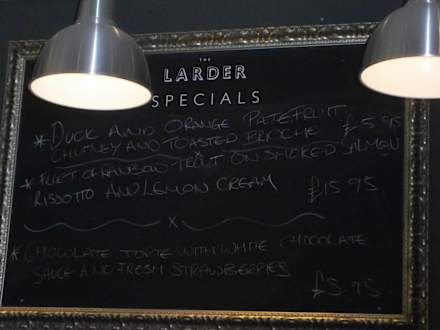 THE
LARDER
SPECIALS
* DUCK AND ORANGE PATE FRUIT
CHUTNEY AND TOASTED BRIOCHE £5.95
* FILLET OF RAINBOW TROUT ON SMOKED SALMON
RISSOTTO AND LEMON CREAM £15.95
x
* CHOCOLATE TORTE WITH WHITE CHOCOLATE
SAUCE AND FRESH STRAWBERRIES
£5.95